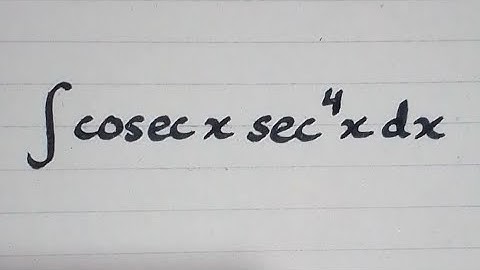 ∫ cosec x sec⁴x dx